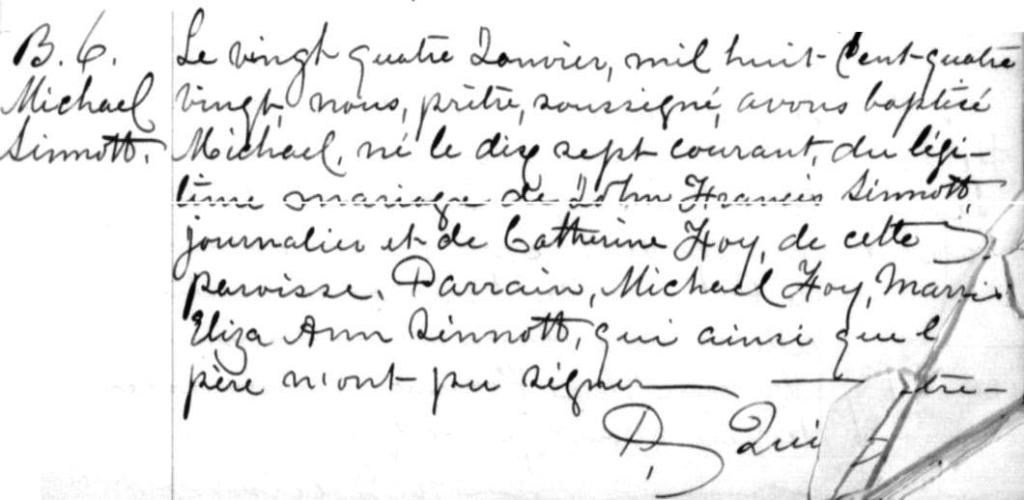 B. 6.
Michael
Sinnott.
Le vingt quatre Janvier, mil huit-Cent-quatre
vingt, nous, prêtre, soussigné, avons baptisé
Michael, né le dix sept courant, du légi-
time mariage de John Francis Sinnott,
journalier et de Catherine Hoy, de cette
paroisse. Parrain, Michael Hoy, Marrai
Eliza Ann Sinnott, qui ainsi que l
père n'ont pu signer